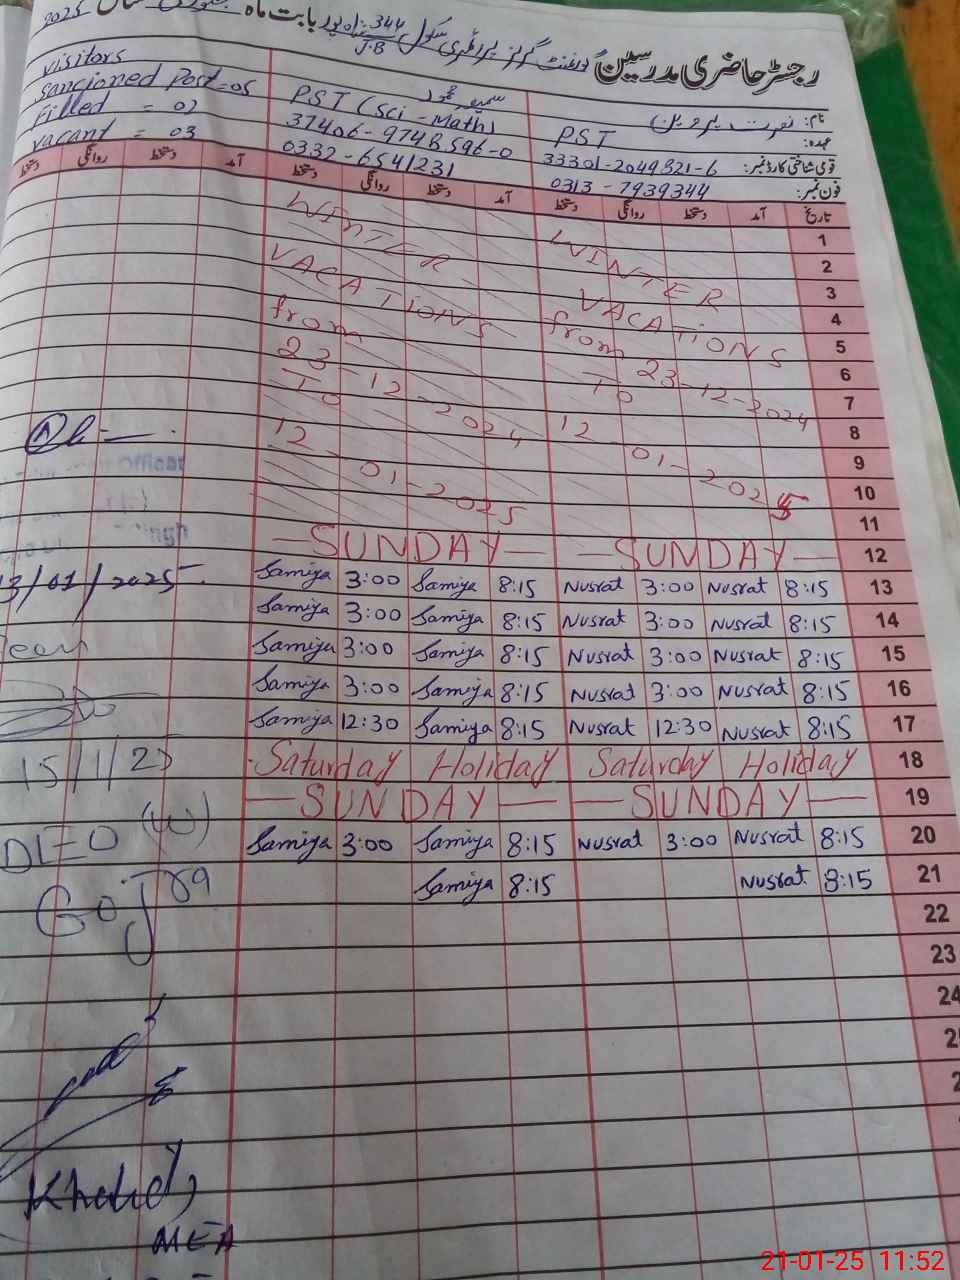 رجسٹر حاضری مدرسین گورنمنٹ گرلز پرائمری سکول 344 J.B شاہ پور بابت ماہ جنوری سال 2025
visitors
Sancioned Post = 05
Filled = 02
vacant = 03
PST (Sci - Math)
37406-9748596-0
0332-6541231
نام: نصرت پروین
عہدہ: PST
قومی شناختی کارڈ نمبر: 33301-2049821-6
فون نمبر: 0313-7939344
تاریخ آمد دستخط روانگی دستخط آمد دستخط روانگی دستخط آمد دستخط روانگی دستخط
1
2
3
4
5
6
7
8
9
10
11
WINTER
VACATIONS
from
23-12-2024
To
12-01-2025
WINTER
VACATIONS
from
23-12-2024
To
12-01-2025
— SUNDAY — — SUNDAY — 12
Samiya 3:00 Samiya 8:15 Nusrat 3:00 Nusrat 8:15 13
Samiya 3:00 Samiya 8:15 Nusrat 3:00 Nusrat 8:15 14
Samiya 3:00 Samiya 8:15 Nusrat 3:00 Nusrat 8:15 15
Samiya 3:00 Samiya 8:15 Nusrat 3:00 Nusrat 8:15 16
Samiya 12:30 Samiya 8:15 Nusrat 12:30 Nusrat 8:15 17
Saturday Holiday Saturday Holiday 18
— SUNDAY — — SUNDAY — 19
Samiya 3:00 Samiya 8:15 Nusrat 3:00 Nusrat 8:15 20
Samiya 8:15 Nusrat 8:15 21
22
23
24
3/01/2025
15/1/25
DEO (W)
Gojra
Khalid
MEA
21-01-25 11:52